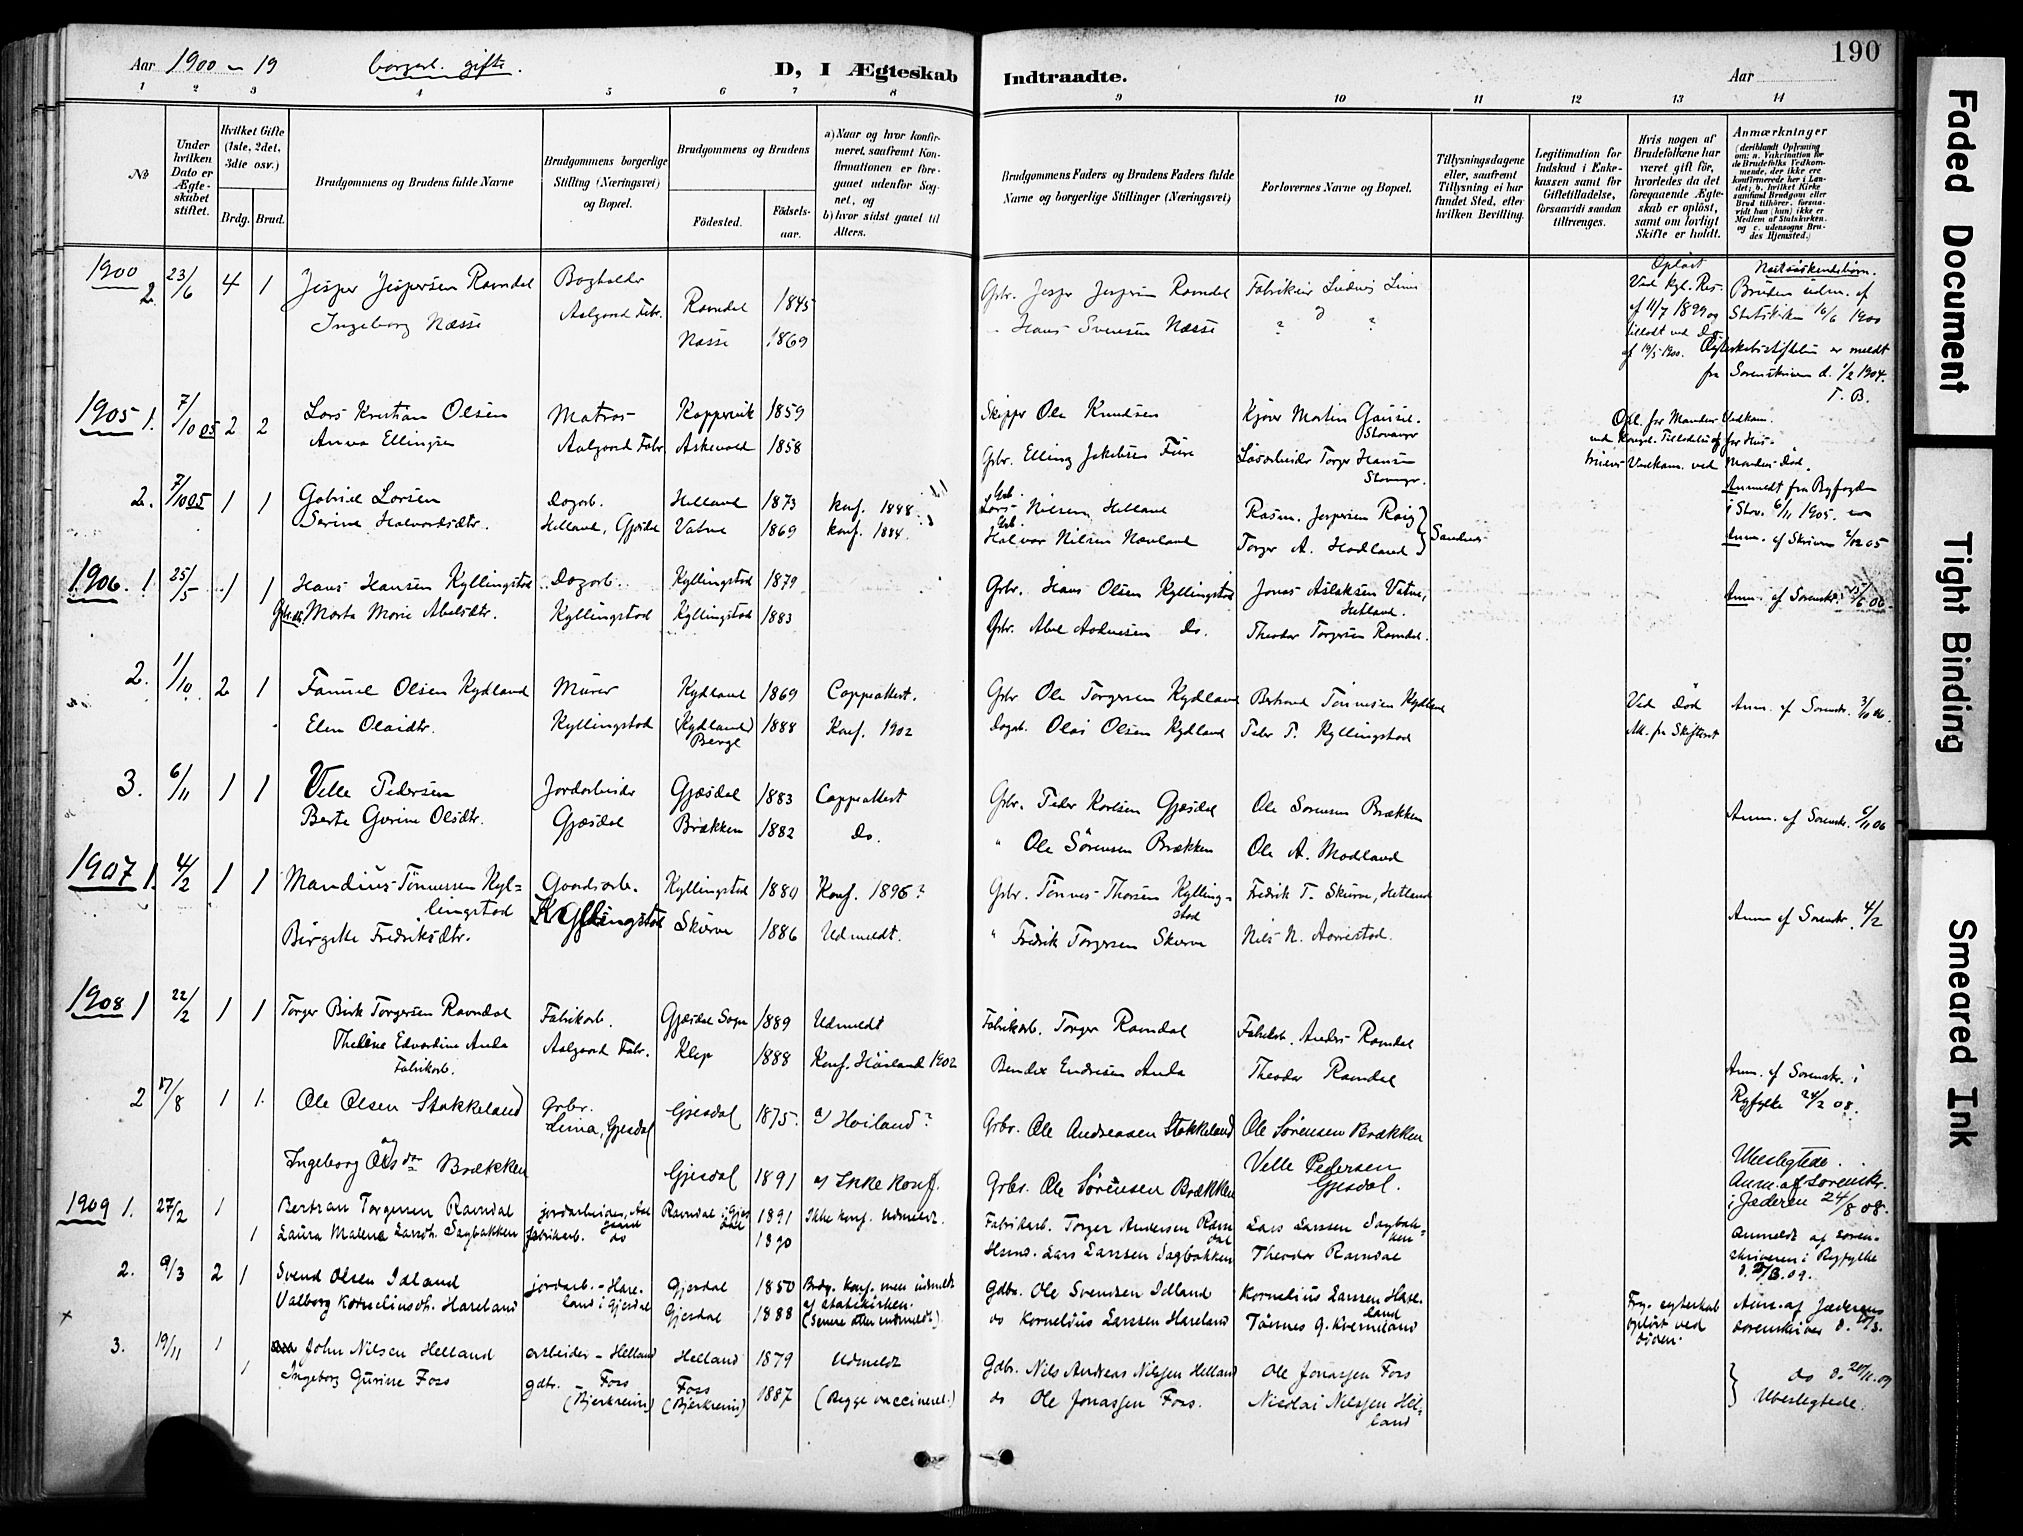 190
Aar 1900 - 19 borgerl. gifte.
D, I Ægteskab Indtraadte. Aar
1 2 3 4 5 6 7 8 9 10 11 12 13 14
No
Under hvilken Dato er Ægteskabet stiftet.
Hvilket Gifte (1ste, 2det, 3die osv.)
Brdg. Brud.
Brudgommens og Brudens fulde Navne
Brudgommens borgerlige Stilling (Næringsvei) og Bopæl.
Brudgommens og Brudens
Fødested. Fødselsaar.
a) Naar og hvor konfirmeret, saafremt Konfirmationen er foregaaet udenfor Sognet, og
b) hvor sidst gaaet til Alters.
Brudgommens Faders og Brudens Faders fulde Navne og borgerlige Stillinger (Næringsvei)
Forlovernes Navne og Bopæl.
Tillysningsdagene eller, saafremt Tillysning ei har fundet Sted, efter hvilken Bevilling.
Legitimation for Indskud i Enkekassen samt for Giftetilladelse, forsaavidt saadan tiltrænges.
Hvis nogen af Brudefolkene har været gift før, hvorledes da det foregaaende Ægteskab er opløst, samt om lovligt Skifte er holdt.
Anmærkninger (deriblandt Oplysning om: a. Vakcination for de Brudefolks Vedkommende, der ikke ere konfirmerede her i Landet; b. hvilket Kirkesamfund Brudgom eller Brud tilhører, forsaavidt han (hun) ikke er Medlem af Statskirken, og c. udensogns Brudes Hjemsted.)
1900 2. 23/6 4 1 Jesper Jespersen Ravndal Bogholder Aalgaard Fabr. Ravndal 1845 Gbr. Jesper Jespersen Ravndal
Ingeborg Næsse Næsse 1869 Hans Svensen Næsse
Opløst Ved kgl. Res. af 11/7 1899 og
Bruden udm. af Statskirken 16/6 1900
Ægteskabsstiftelsen er meldt fra Sorenskriveren d. 1/2 1904.
T. B.
1905 1. 7/10 05 2 2 Lars Kristian Olsen Matros Koppervik 1859 Skipper Ole Knudsen
Anna Ellingsen Aalgaard Fabr. Askevold 1858 Gbr. Elling Jakobsen Fure Løsarbeider Torger Hansen Stavanger
2. 7/10 05 1 1 Gabriel Larsen Dagarb. Helland 1873 Konf. 1888 Gbr. Lars Nilsen Helland
Serine Halvardsdtr. Helland, Gjesdal Vatne 1869 Konf. 1884. Gbr. Halvor Nilsen Torger A. Hodland Sandnes
Anmeldt fra Byfogden i Stav. 6/11 1905.
1906 1. 25/5 1 1 Hans Hansen Kyllingstad Dagarb. Kyllingstad 1879 Gbr. Hans Olsen Kyllingstad Jonas Aslaksen Vatne, Hetland.
Marta Marie Abelsdtr. Kyllingstad Kyllingstad 1883 Gbr. Abel Do. Theodor Torgersen Ravndal.
Anm. af Sorenskr.
2. 1/10 2 1 Samuel Olsen Kydland Murer Kydland 1869 Coppeattest. Gbr Ole Torgersen Kydland Bertrand Tønnesen Kydland Ved Død Anm. af Sorenskr. 3/10 06.
Elen Olaidtr. Kyllingstad (Kydland) Berge 1888 Konf. 1902 Dagarb. Olai Olsen Kydland Peder T. Kyllingstad Att. fra Skifteret
3. 6/11 1 1 Velle Pedersen Jordarbeider Gjæsdal 1883 Coppeattest Gbr. Peder Karlsen Gjæsdal Ole Sørensen Brækken
Berte Gurine Olsdtr. Gjæsdal Brækken 1882 Do. " Ole Sørensen Brækken Ole A. Modland
Anm. af Sorenskr. 6/11 06
1907 1. 4/2 1 1 Mandius Tønnessen Kyllingstad Gaardsarb. Kyllingstad Kyllingstad 1880 Konf. 1896? Gbr. Tønnes Thorsen Kyllingstad Fredrik T. Skurve, Hetland
Birgitte Fredriksdtr. Skurve 1886 Udmeldt. " Fredrik Torgersen Skurve Nils N. Aarrestad.
Anm af Sorenskr. 4/2
1908 1 22/2 1 1 Torger Birk Torgersen Ravndal Fabrikarb. Gjæsdal Sogn 1889 Udmeldt Fabrikarb. Torger Ravndal Fabrikarb. Anders Ravndal
Theline Edvardine Anda Fabrikarb. Aalgaard Fabr. Klep 1888 Konf. Høiland 1902 Bendix Endresen Anda Theodor Ravndal
Anm. af Sorenskr. i Ryfylke 24/2 08.
2 17/8 1 1. Ole Olsen Stokkeland Grbr. Lima, Gjesdal Gjesdal 1875. a) Høiland? Grbr. Ole Andreasen Stokkeland Ole Sørensen Brækken
Ingeborg Olsdtr Brækken Gjesdal 1891 a) Ikke konf. Grbr. Ole Sørensen Brækken Velle Pedersen Gjesdal.
Ubeslegtede. Anm. af Sorenskr. i Jæderen 24/8 08.
1909 1. 27/2 1 Bertran Torgersen Ravndal jordarbeider, Aalgaard Ravndal i Gjesdal 1891 Ikke konf. Udmeldt. Fabrikarb. Torger Andersen Ravndal Lars Larssen Sagbakken
1 Laura Malena Larsdtr. Sagbakken fabrikarb. do 1890 Husmd. Lars Larssen Sagbakken Theodor Ravndal
Anmeldt af sorenskriveren i Ryfylke
2. 9/3 2 1 Svend Olsen Idland jordarb. - Hareland i Gjesdal Gjesdal 1850 Brdg. konf. men udmeldt af statskirken. Gdbr. Ole Svendsen Idland Kornelius Larssen Hareland
Valborg Korneliusdtr. Hareland Gjesdal 1888 (Senere atter indmeldt) do Kornelius Larssen Hareland Tønnes G. Kverneland
Frg. egteskab opløst ved døden. Anm. af Jæderens sorenskriver d. 10/3.
3. 19/11 1 John Nilsen Helland arbeider - Helland Helland 1879 Udmeldt Gdbr. Nils Andreas Nilssen Helland Ole Jonassen Foss
1 Ingeborg Gurine Foss gdbr. Foss (Bjerkreim) Foss (Bjerkreim) 1887 (Begge vaccineret.) do Ole Jonassen Foss. Nicolai Nilssen Helland
do d. 20/11.09 Ubeslegtede.
Faded Document
Tight Binding
Smeared Ink